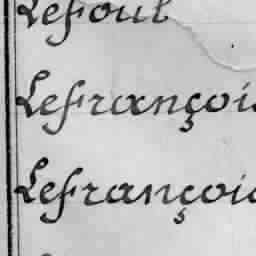 Lefoul
Lefrançois
Lefrançois